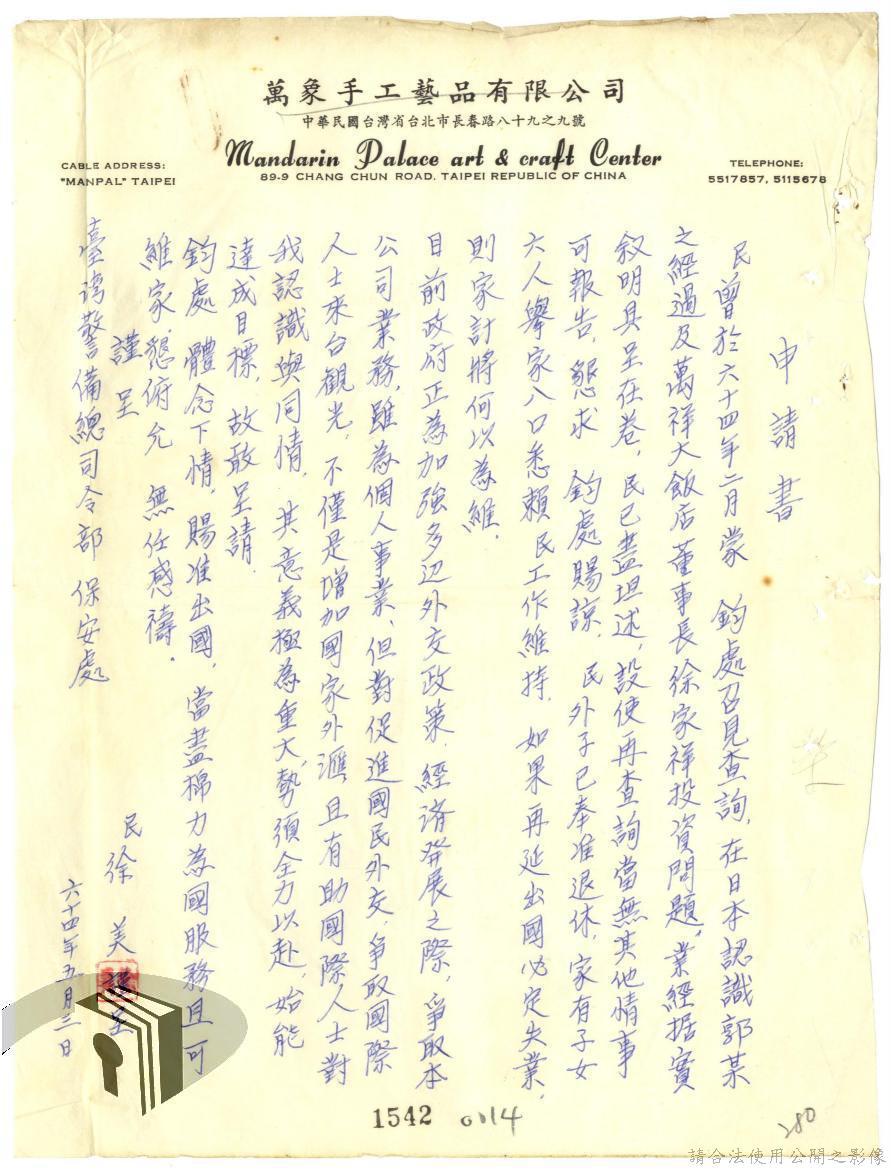 萬象手工藝品有限公司
中華民國台灣省台北市長春路八十九之九號
Mandarin Palace art & craft Center
89-9 CHANG CHUN ROAD. TAIPEI REPUBLIC OF CHINA
CABLE ADDRESS:
"MANPAL" TAIPEI
TELEPHONE:
5517857, 5115678
申請書
民曾於六十四年二月蒙 鈞處召見查詢,在日本認識郭某
之經過及萬祥大飯店董事長徐家祥投資問題,業經据實
叙明具呈在卷,民已盡坦述,設使再查詢當無其他情事
可報告,懇求 鈞處賜諒.民外子已奉准退休,家有子女
六人舉家八口悉賴民工作維持.如果再延出國必定失業,
則家計將何以為維.
目前政府正為加強多边外交政策.經済發展之際,爭取本
公司業務,雖為個人事業,但對促進國民外交,爭取國際
人士來台観光,不僅是增加國家外滙,且有助國際人士對
我認識與同情.其意義極為重大,勢須全力以赴,始能
達成目標.故敢呈請.
鈞處 體念下情,賜准出國,當盡棉力為國服務且可
維家.懇俯允 無任感禱.
謹呈
臺湾警備總司令部 保安處
民 徐美 謹呈
六十四年五月三日
1542
0014
280
請合法使用公開之影像